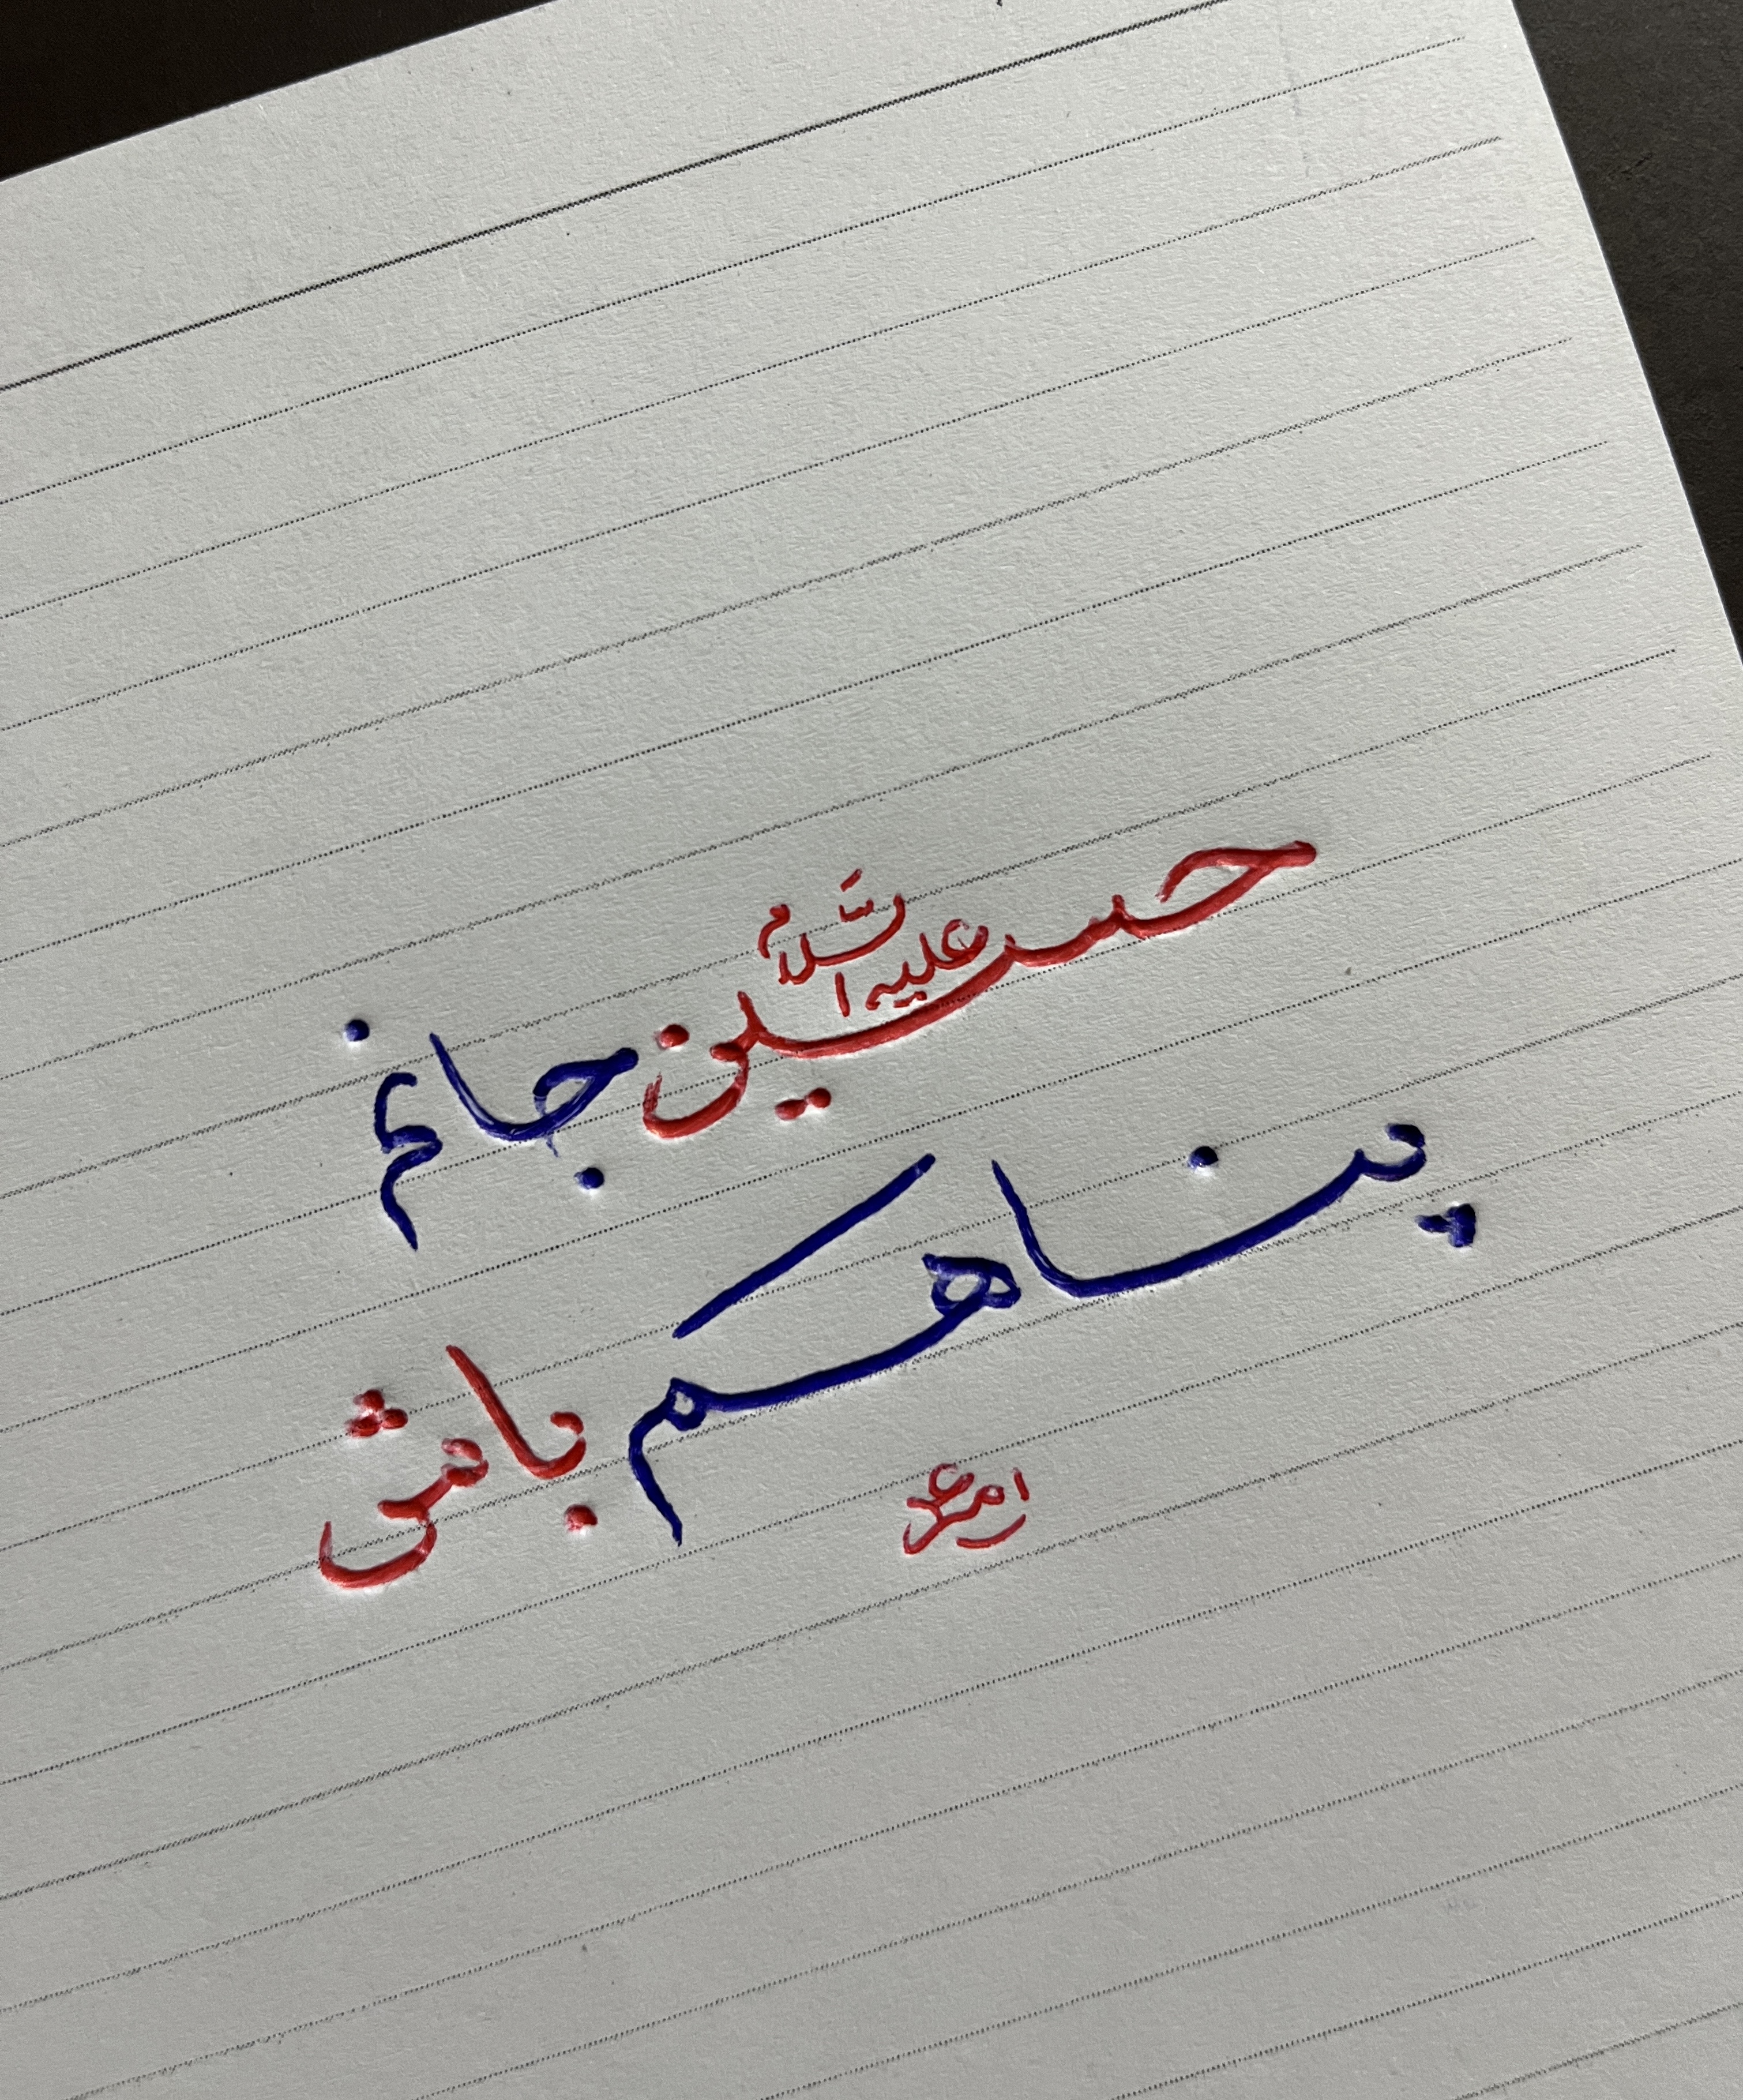 حسین علیه السلام جانم
پناهم باش